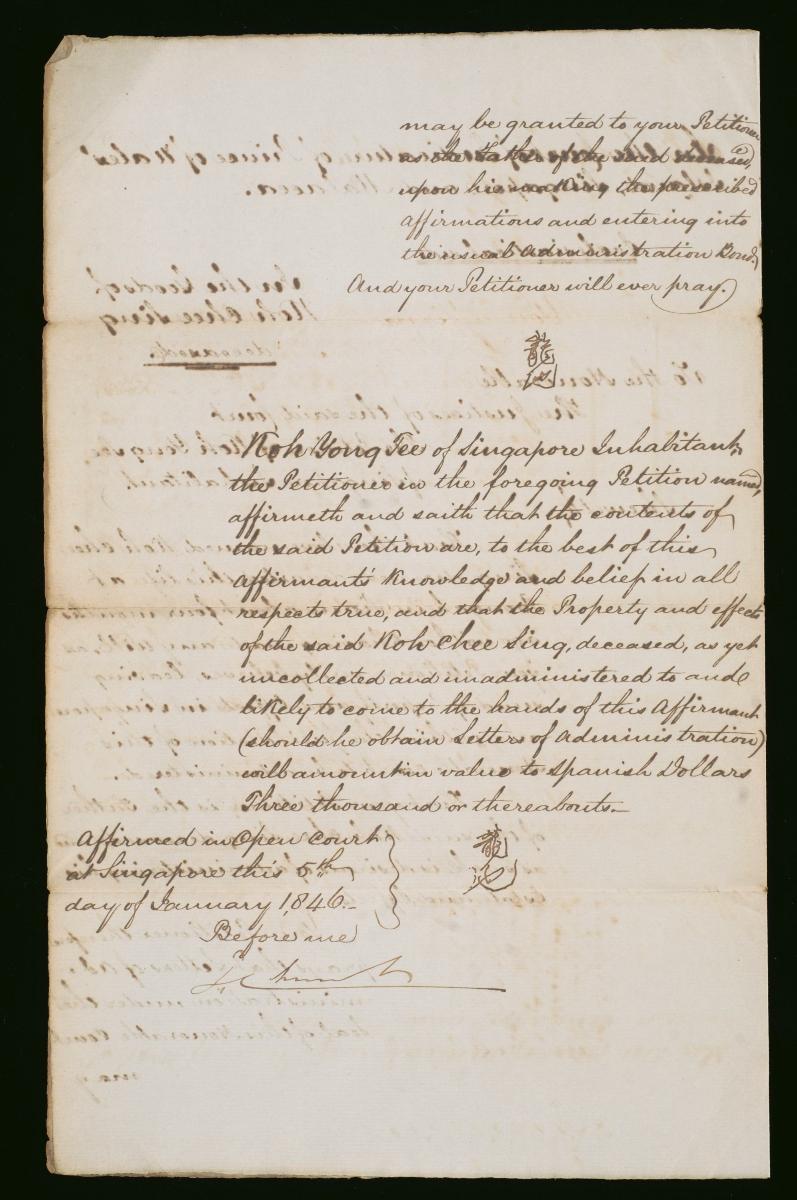 may be granted to your Petitioner
as the Father of the said deceased,
upon his making the prescribed
affirmations and entering into
the usual administration Bond.
And your Petitioner will ever pray.
龍
Koh Yong Tee of Singapore Inhabitant,
the Petitioner in the foregoing Petition named,
affirmeth and saith that the contents of
the said Petition are, to the best of this
Affirmant's Knowledge and belief in all
respects true, and that the Property and effects
of the said Koh Chee Sing, deceased, as yet
uncollected and unadministered to and
likely to come to the hands of this Affirmant
(should he obtain Letters of Administration)
will amount in value to Spanish Dollars
Three thousand or thereabouts.
Affirmed in Open Court
at Singapore this 5th
day of January 1846.
龍
Before me